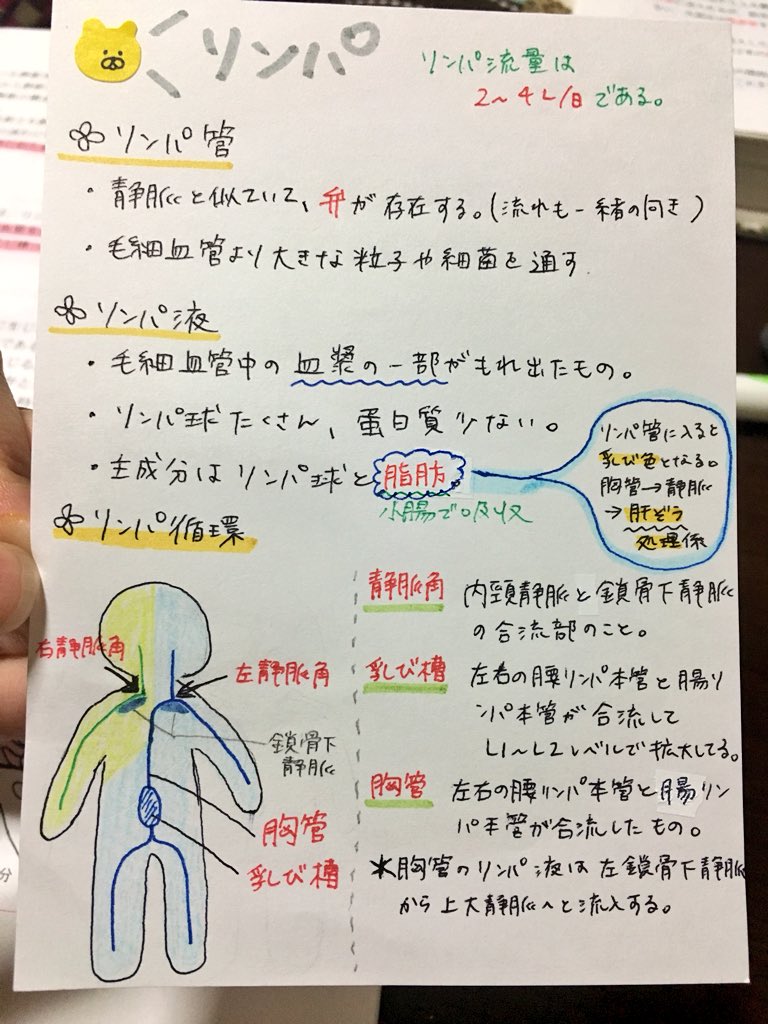 リンパ
リンパ流量は
2〜4L/日である。
リンパ管
・静脈と似ていて、弁が存在する。(流れも一緒の向き)
・毛細血管より大きな粒子や細菌を通す
リンパ液
・毛細血管中の血漿の一部がもれ出たもの。
・リンパ球たくさん、蛋白質少ない。
・主成分はリンパ球と脂肪
小腸で吸収
リンパ管に入ると
乳び色となる。
胸管→静脈
→肝ぞう
処理係
リンパ循環
右静脈角
左静脈角
鎖骨下
静脈
胸管
乳び槽
静脈角 内頸静脈と鎖骨下静脈
の合流部のこと。
乳び槽 左右の腰リンパ本管と腸リ
ンパ本管が合流して
L1〜L2レベルで拡大してる。
胸管 左右の腰リンパ本管と腸リン
パ本管が合流したもの。
*胸管のリンパ液は左鎖骨下静脈
から上大静脈へと流入する。